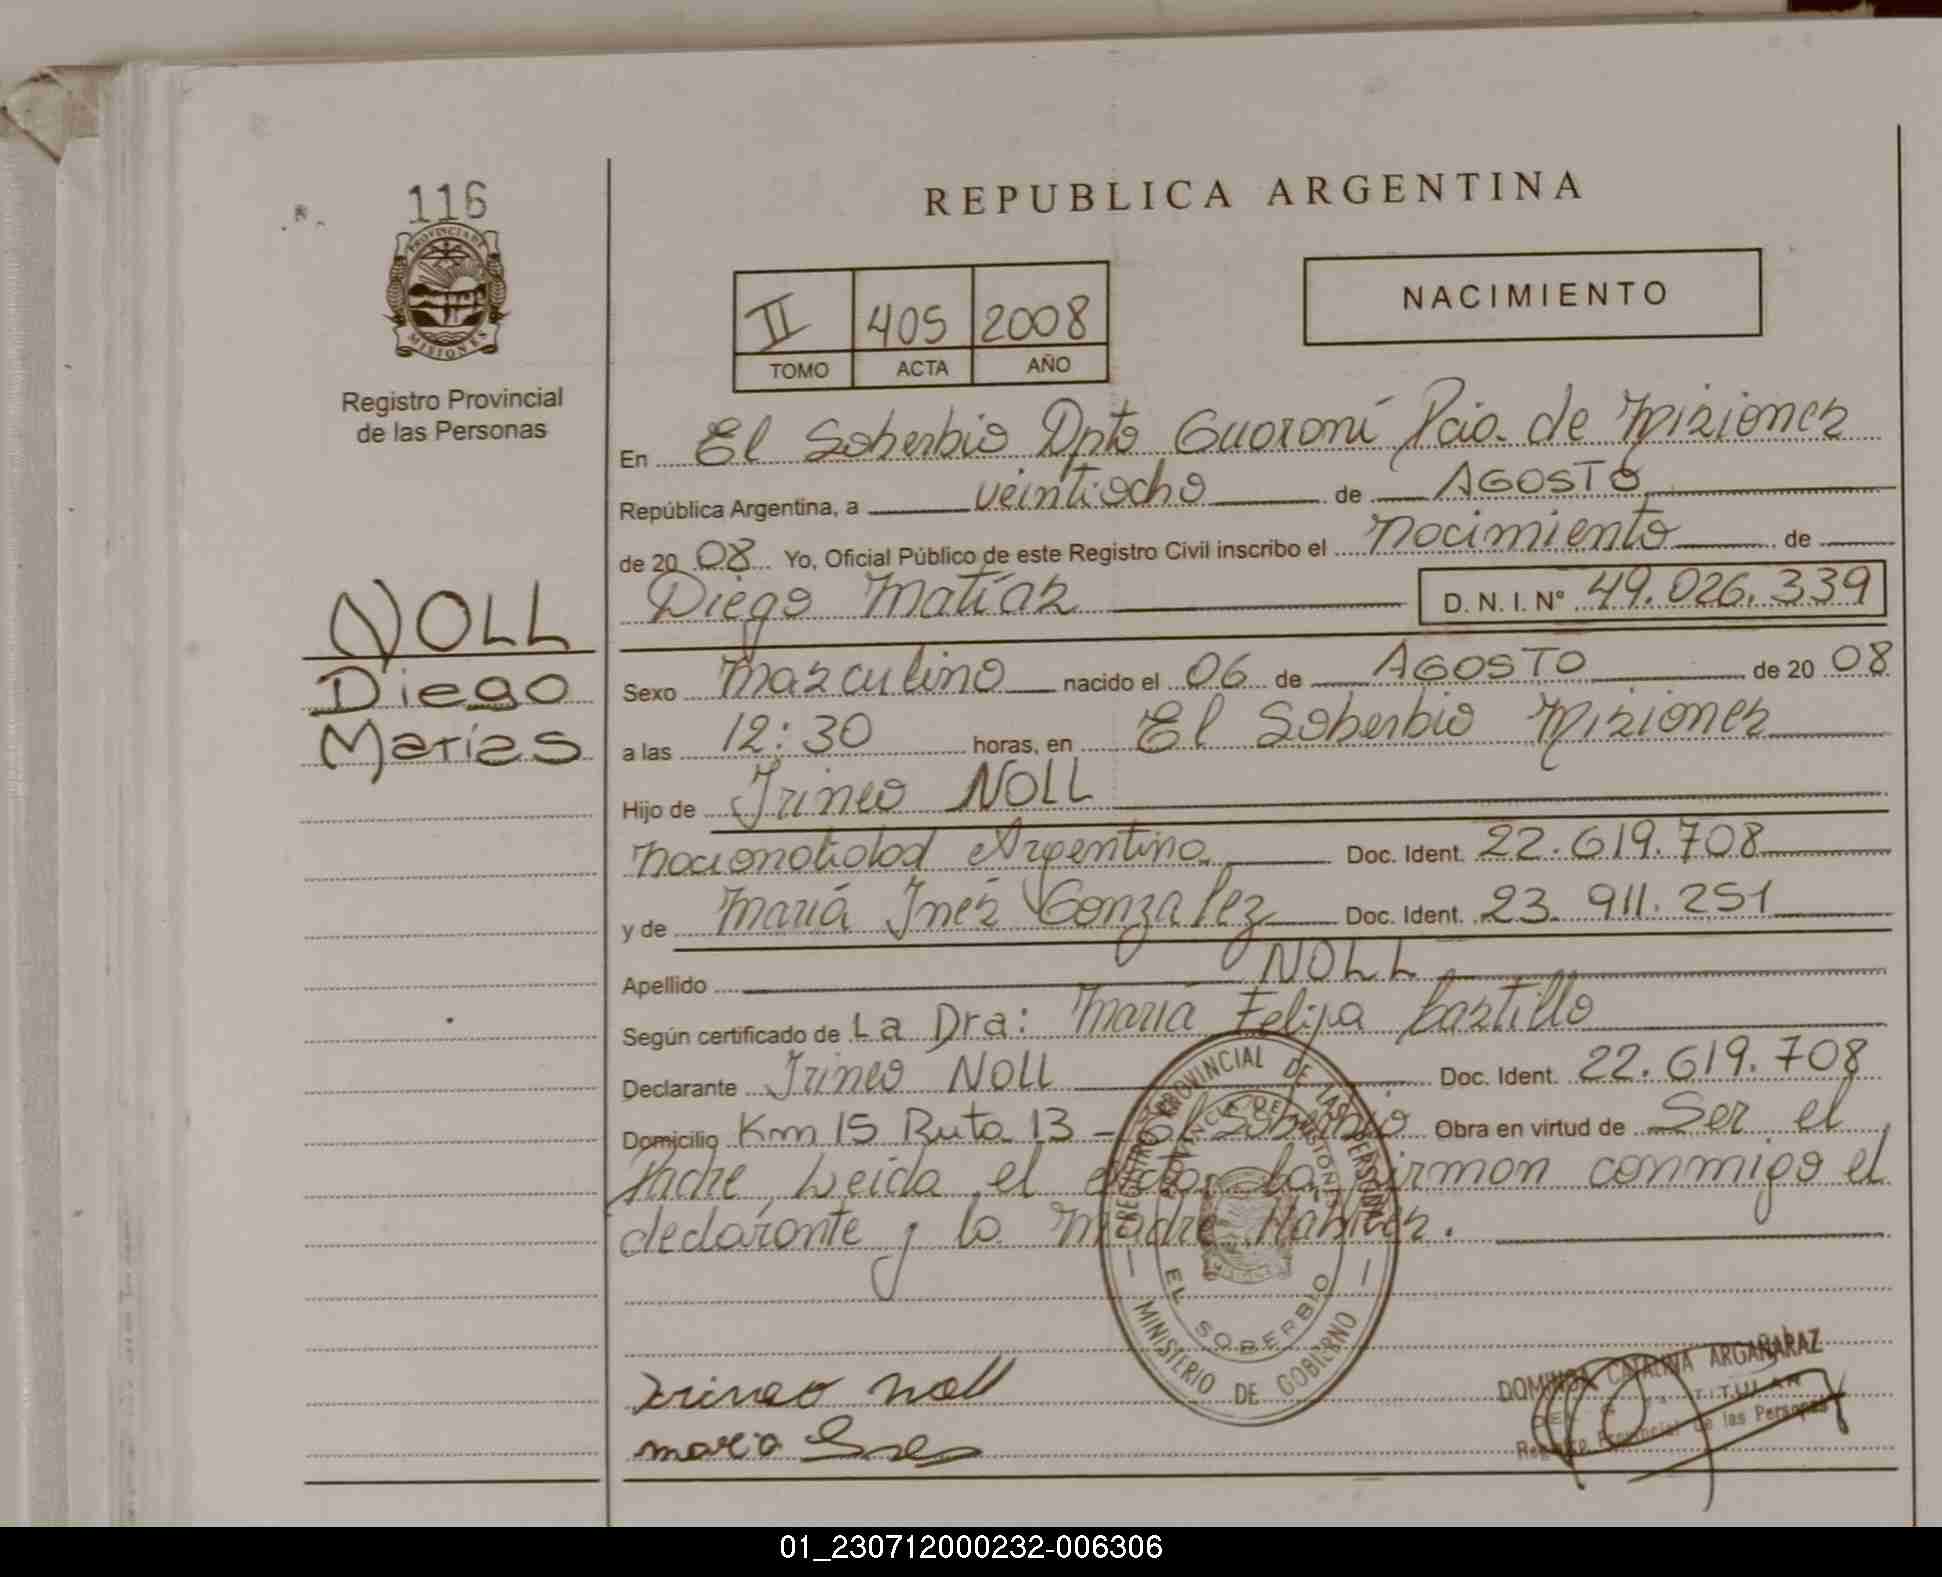 116
PROVINCIA DE
MISIONES
Registro Provincial
de las Personas
NOLL
Diego
Matías
REPUBLICA ARGENTINA
NACIMIENTO
II 405 2008
TOMO ACTA AÑO
En El Soberbio Dpto Guaraní Pcia. de Misiones
República Argentina, a veintiocho de AGOSTO
de 20 08 Yo, Oficial Público de este Registro Civil inscribo el nacimiento de
Diego Matías D. N. I. Nº 49.026.339
Sexo masculino nacido el 06 de AGOSTO de 20 08
a las 12:30 horas, en El Soberbio Misiones
Hijo de Irineo NOLL
nacionalidad Argentina Doc. Ident. 22.619.708
y de María Inés Gonzalez Doc. Ident. 23.911.251
Apellido NOLL
Según certificado de La Dra: María Felipa Castillo
Declarante Irineo NOLL Doc. Ident. 22.619.708
Domicilio Km 15 Ruta 13 - El Soberbio Obra en virtud de Ser el
Padre, Leida el acta, la firman conmigo el
declarante y la madre
REGISTRO PROVINCIAL DE LAS PERSONAS
PROVINCIA DE MISIONES
EL SOBERBIO
MINISTERIO DE GOBIERNO
Irineo noll
maria Ines
DOMINGA CATALINA ARGAÑARAZ
TITULAR
Registro Provincial de las Personas
01_230712000232-006306